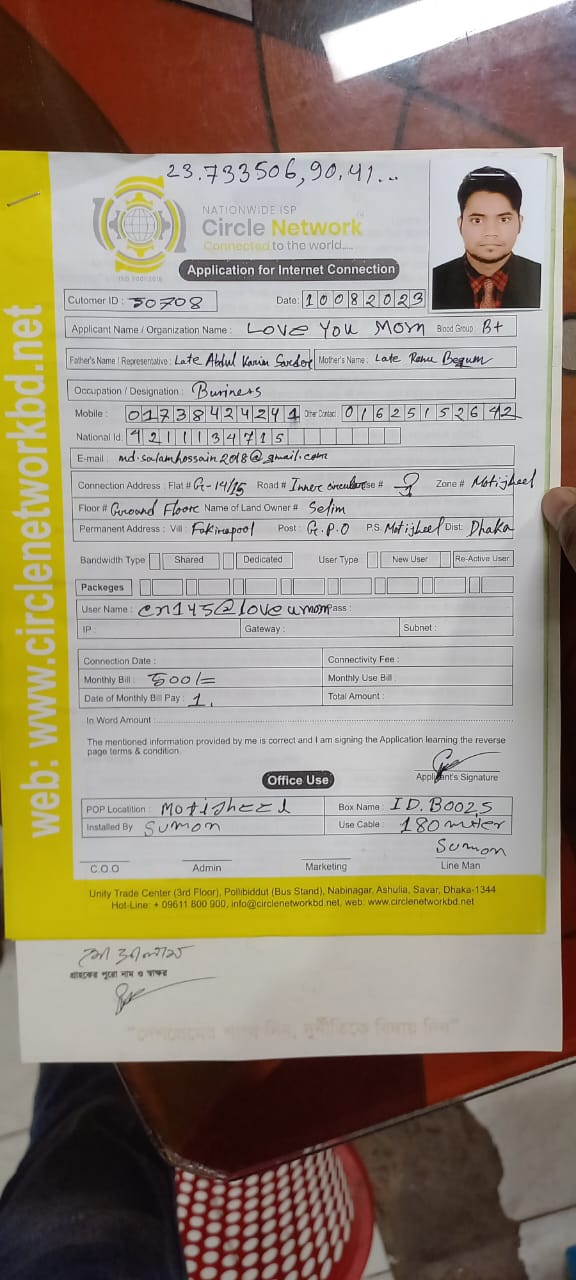 23.733506, 90.41...
NATIONWIDE ISP
Circle Network
Connected to the world.....
ISO 9001:2015
Application for Internet Connection
Cutomer ID : 50708 Date: 10082023
Applicant Name / Organization Name : Love You Mom Blood Group: B+
Father's Name / Representative : Late Abdul Karim Sarder Mother's Name : Late Renu Begum
Occupation / Designation : Business
Mobile : 01738424241 Other Contact 01625152642
National Id: 4211134715
E-mail : md.salamhossain2018@gmail.com
Connection Address : Flat # G-14/15 Road # Inner circular # Zone # Motijheel
Floor # Ground Floor Name of Land Owner # Selim
Permanent Address : Vill : Fakirapool Post : G.P.O P.S. Motijheel Dist: Dhaka
Bandwidth Type Shared Dedicated User Type New User Re-Active User
Packeges
User Name : cn145@loveumom Pass :
IP : Gateway : Subnet :
Connection Date : Connectivity Fee :
Monthly Bill : 500/= Monthly Use Bill :
Date of Monthly Bill Pay : 1. Total Amount :
In Word Amount :
The mentioned information provided by me is correct and I am signing the Application learning the reverse
page terms & condition.
Applicant's Signature
Office Use
POP Locatition : Motijheel Box Name : ID.B0025
Installed By Sumon Use Cable : 180 miter
Sumon
C.O.O Admin Marketing Line Man
Unity Trade Center (3rd Floor), Pollibiddut (Bus Stand), Nabinagar, Ashulia, Savar, Dhaka-1344
Hot-Line: + 09611 800 900, info@circlenetworkbd.net, web: www.circlenetworkbd.net
web: www.circlenetworkbd.net
গ্রাহকের পুরো নাম ও স্বাক্ষর
"দেশপ্রেমের শপথ নিন, দুর্নীতিকে বিদায় দিন"